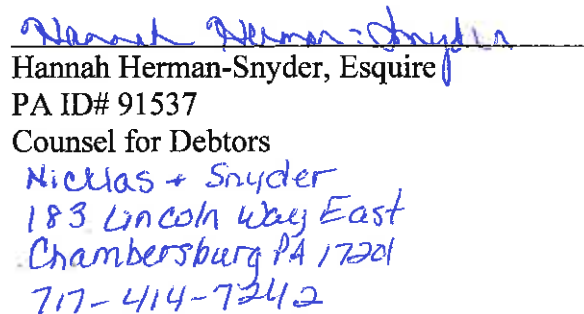 Hannah Herman-Snyder
Hannah Herman-Snyder, Esquire
PA ID# 91537
Counsel for Debtors
Nicklas + Snyder
183 Lincoln Way East
Chambersburg PA 17201
717-414-7242